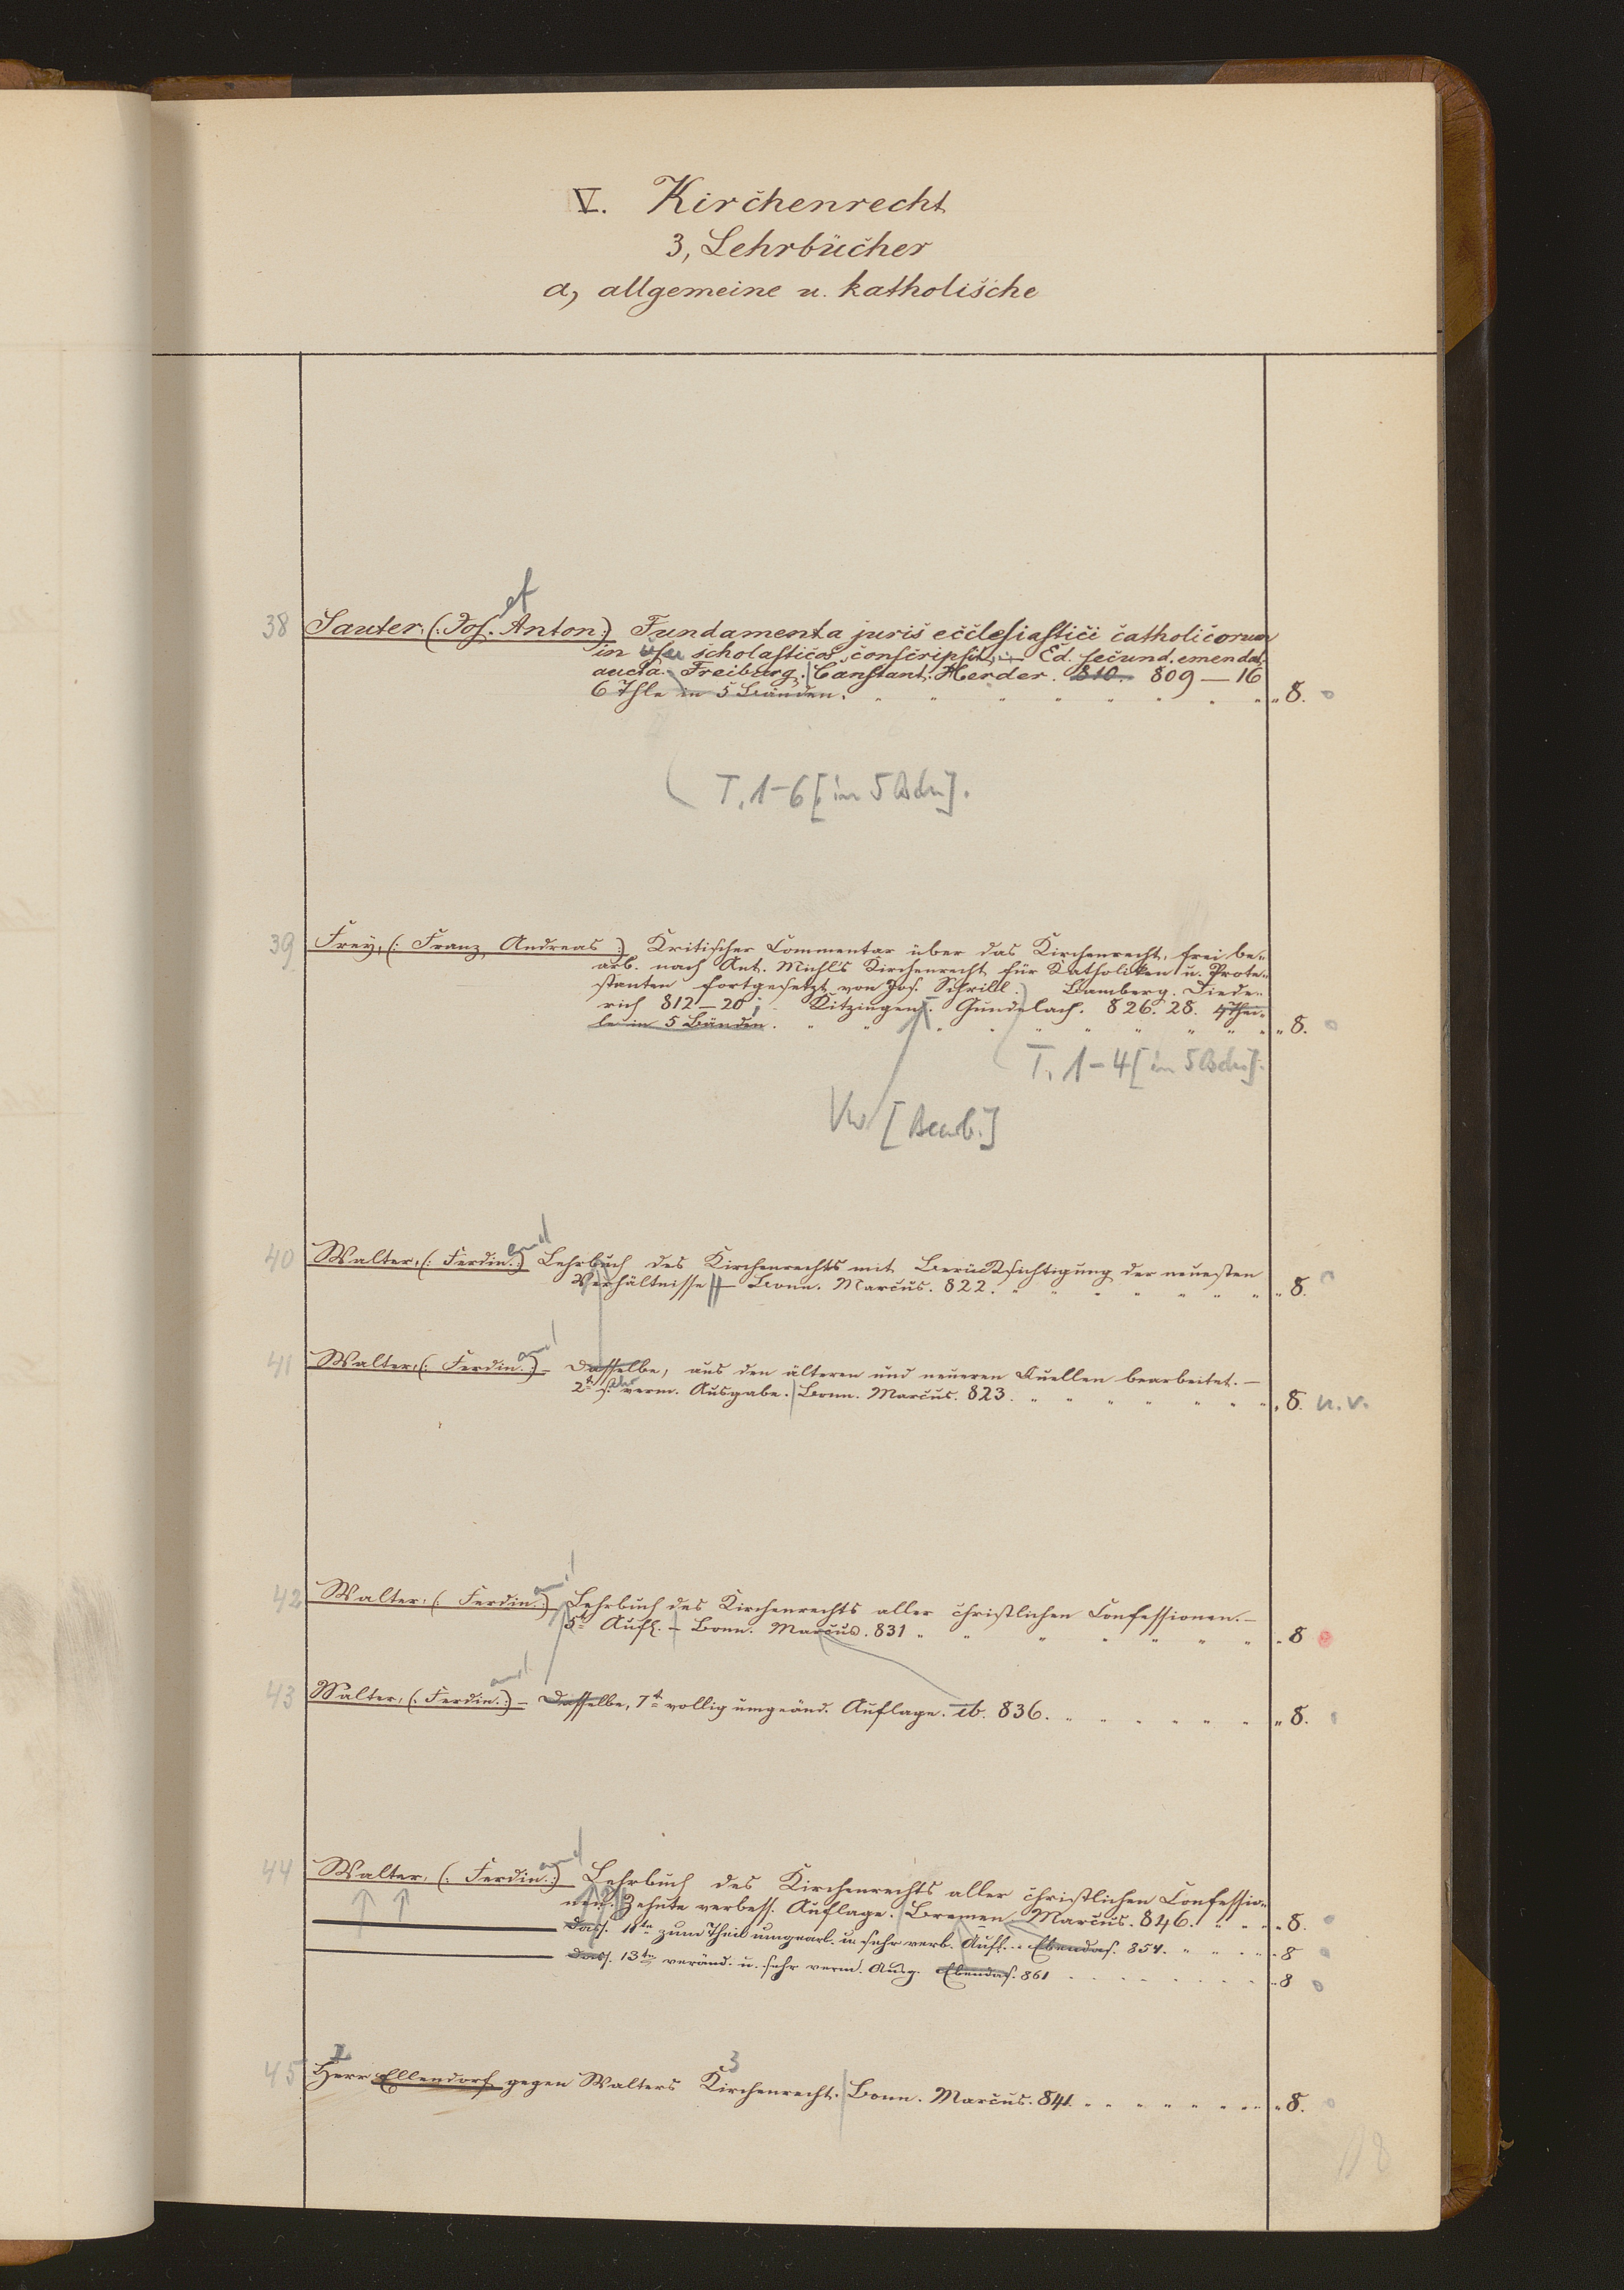 V. Kirchenrecht
3, Lehrbücher
a, allgemeine u. katholische
et
38 Sauter, (: Jos. Anton :) Fundamenta juris ecclesiastici catholicorum
in usu scholasticos conscripsit, Ed. secund. emendat.
aucta. Freiburg. Constant. Herder. 810. 809 — 16
6 Thle in 5 Bänden. " 8.
T. 1-6 [in 5 Bdn].
39 Frey, (: Franz Andreas :) Kritischer Commentar über das Kirchenrecht, frei be-
arb. nach Ant. Michls Kirchenrecht für Katholiken u. Prote-
stanten fortgesetzt von Jos. Schrill.) Bamberg. Diede-
rich 812–20; Kitzingen. Gundelach. 826. 28. 4 Thei-
le in 5 Bänden. " 8.
T. 1-4 [in 5 Bdn].
[Bamb.]
and
40 Walter, (: Ferdin. :) Lehrbuch des Kirchenrechts mit Berücksichtigung der neuesten
Verhältnisse — Bonn. Marcus. 822. " 8.
and
41 Walter, (: Ferdin. :) – Dasselbe, aus den älteren und neueren Quellen bearbeitet. —
2te s. verm. Ausgabe. Bonn. Marcus. 823. " 8. n. v.
and
42 Walter, (: Ferdin. :) Lehrbuch des Kirchenrechts aller christlichen Confessionen. —
5te Aufl. – Bonn. Marcus. 831 " 8
and
43 Walter, (: Ferdin. :) – Dasselbe, 7te vollig umgeänd. Auflage. ib. 836. " 8.
and
44 Walter, (: Ferdin. :) Lehrbuch des Kirchenrechts aller christlichen Confessio-
nen. Zehnte verbess. Auflage. Bremen Marcus. 846. " 8.
—— Dass. 11te zum Theil umgearb. u. sehr verb. Aufl. – Ebendas. 854. " 8
—— Dass. 13te veränd. u. sehr verm. Ausg. Ebendas. 861 " 8
3
45 Herr Ellendorf gegen Walters Kirchenrecht. Bonn. Marcus. 841. " 8.
118